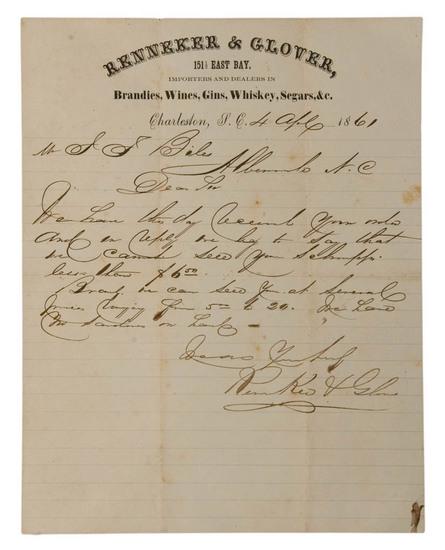 RENNEKER & GLOVER,
151½ EAST BAY,
IMPORTERS AND DEALERS IN
Brandies, Wines, Gins, Whiskey, Segars, &c.
Charleston, S. C. 4 Apl 1861
Mr J J Biles
Albemarle N. C
Dear Sir
We have this day received your order
and in reply we beg to say that
we cannot sell you Schnapps
less than $6.00
Brandy we can sell you at several
prices ranging from 5.00 to 20. We have
no on hand
Yours Truly
Renneker & Glover